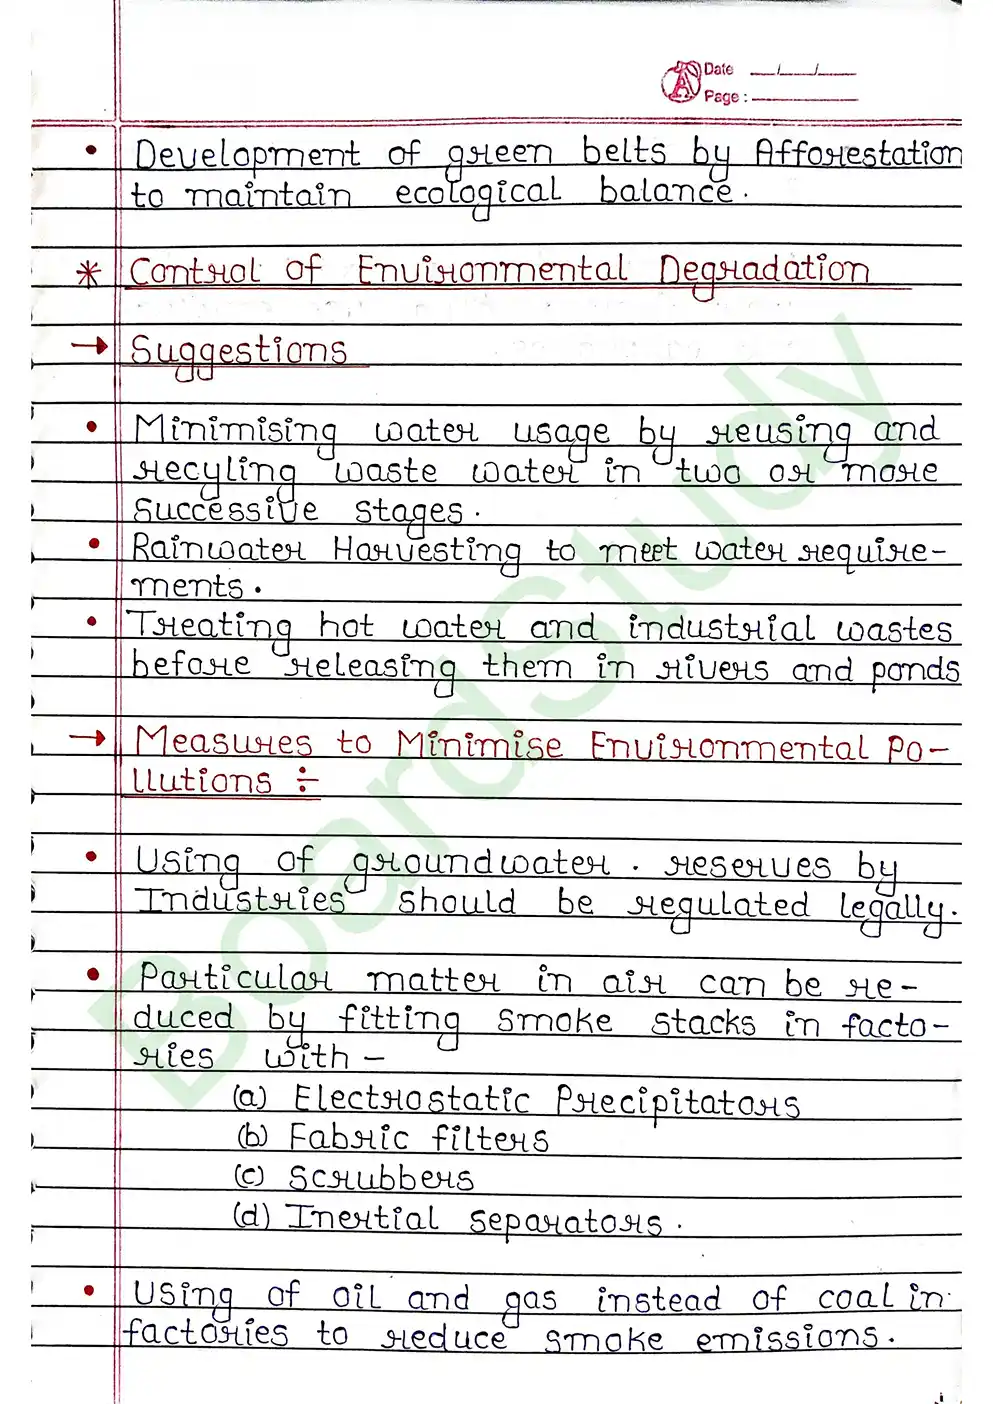 Date __/__/__
Page : ________
• Development of green belts by Afforestation
to maintain ecological balance.
* Control of Environmental Degradation
→ Suggestions
• Minimising water usage by reusing and
recyling waste water in two or more
successive stages.
• Rainwater Harvesting to meet water require-
ments.
• Treating hot water and industrial wastes
before releasing them in rivers and ponds
→ Measures to Minimise Environmental Po-
llutions ÷
• Using of groundwater . reserves by
Industries should be regulated legally.
• Particular matter in air can be re-
duced by fitting smoke stacks in facto-
ries with -
(a) Electrostatic Precipitators
(b) Fabric filters
(c) Scrubbers
(d) Inertial separators.
• Using of oil and gas instead of coal in
factories to reduce smoke emissions.
BoardStudy